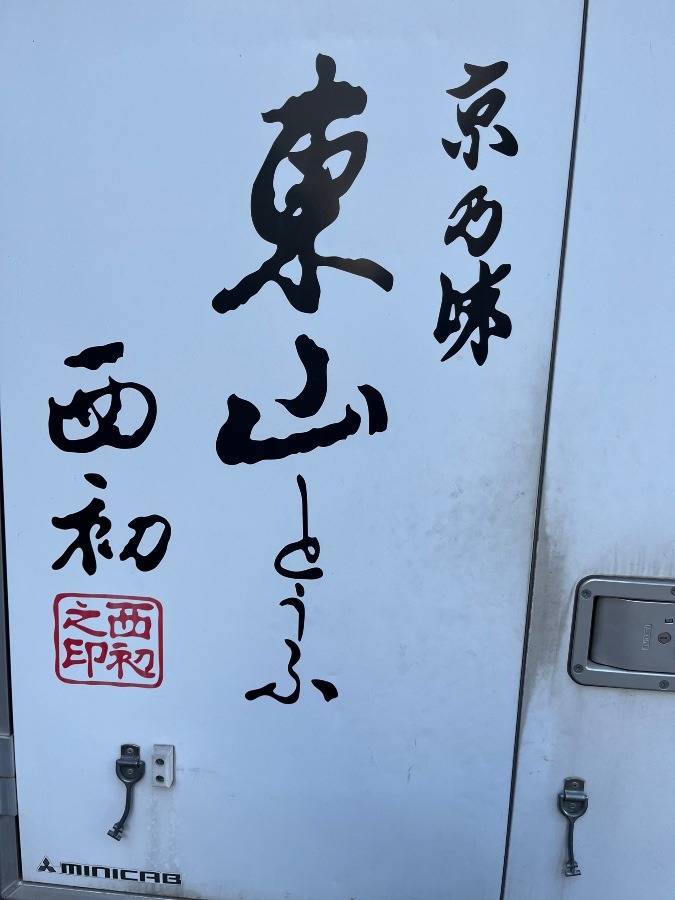 京乃味
東山とうふ
西初
西初
之印
MINICAB